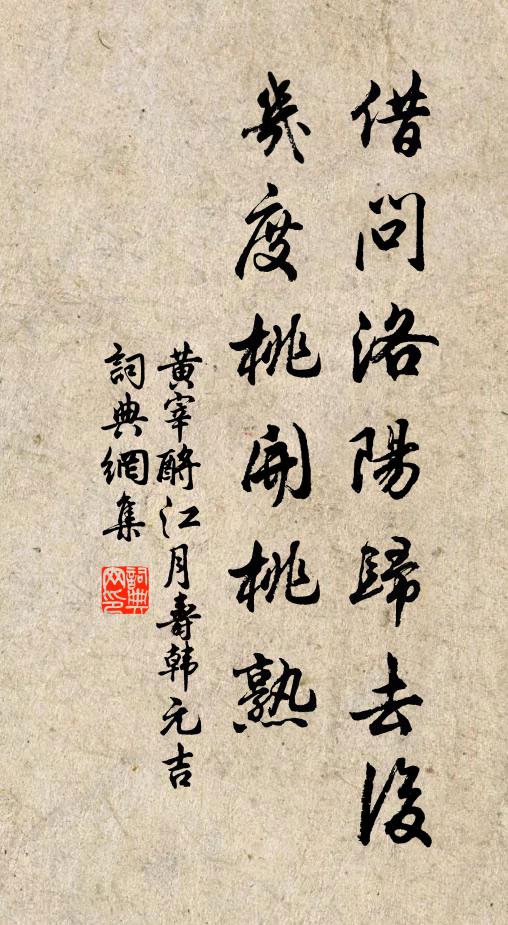 借問洛陽歸去後
幾度桃開桃熟
黃宰酹江月壽韓元吉
詞典網集
詞典
网印